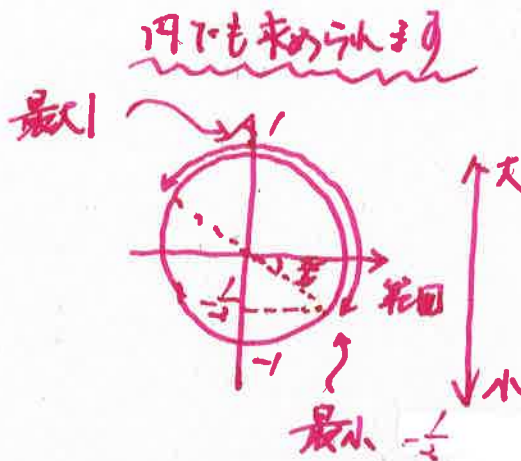 円でも求められます
最大1
1
大
範囲
-1/2
-1
小
最小 -1/2